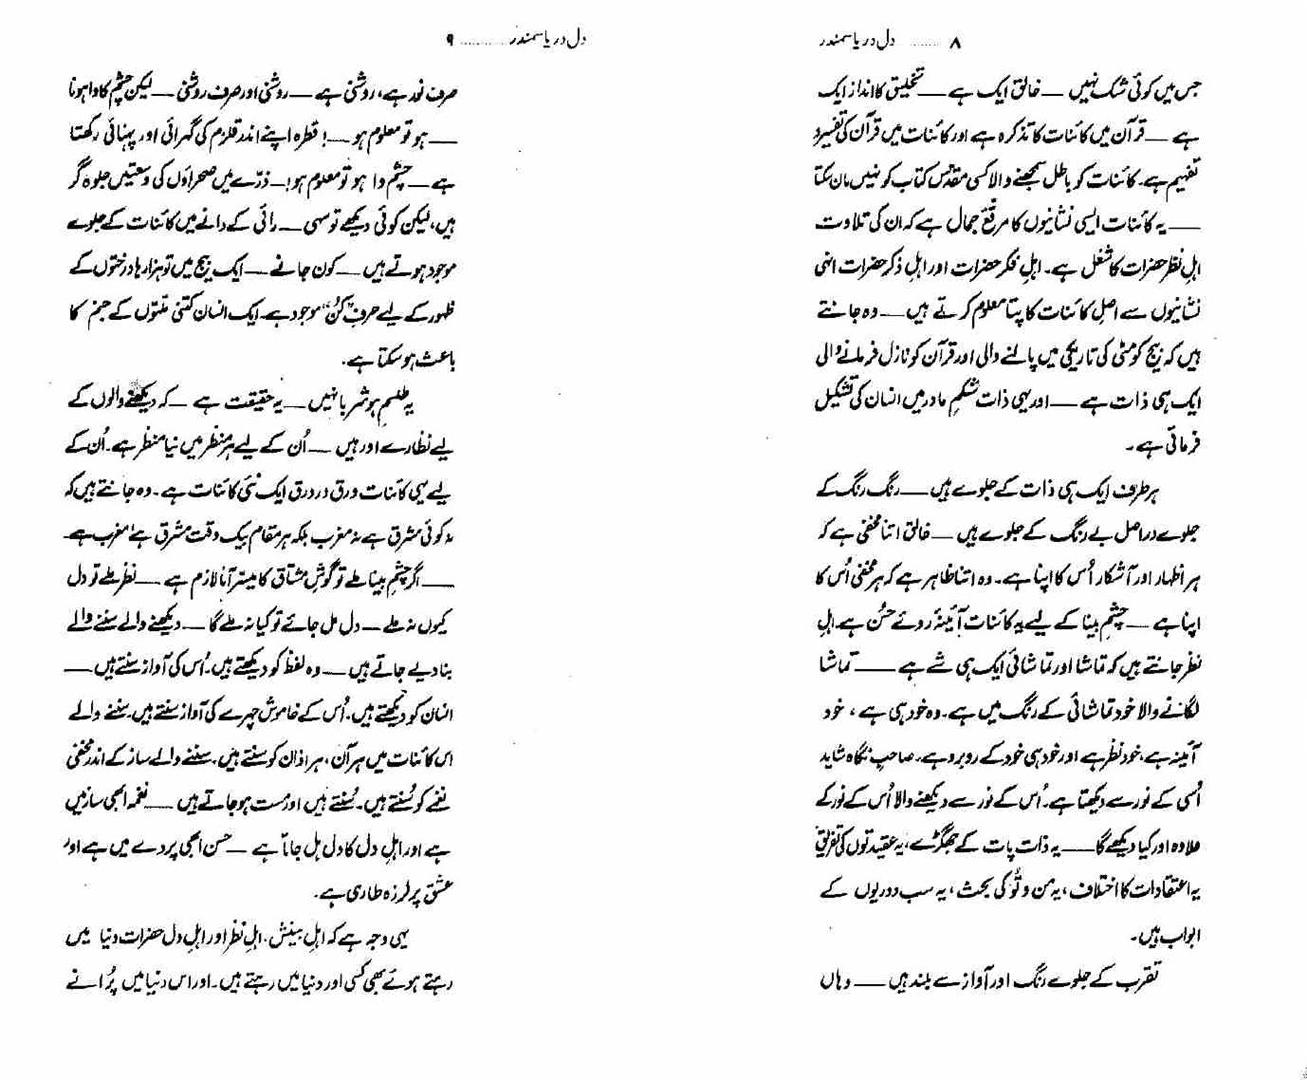 ۸ ........ دل دریا سمندر
جس میں کوئی شک نہیں ــــ خالق ایک ہے ــــ تخلیق کا انداز ایک
ہے ــــ قرآن میں کائنات کا تذکرہ ہے اور کائنات میں قرآن کی تفسیر و
تفہیم ہے۔ کائنات کو باطل سمجھنے والا کسی مقدّس کتاب کو نہیں مان سکتا
ــــ یہ کائنات ایسی نشانیوں کا مرقّعِ جمال ہے کہ ان کی تلاوت
اہلِ نظر حضرات کا شغل ہے۔ اہلِ فکر حضرات اور اہلِ ذکر حضرات انہی
نشانیوں سے اصلِ کائنات کا پتا معلوم کرتے ہیں ــــ وہ جانتے
ہیں کہ بیج کو مٹی کی تاریکی میں پالنے والی اور قرآن کو نازل فرمانے والی
ایک ہی ذات ہے ــــ اور یہی ذات شکمِ مادر میں انسان کی تشکیل
فرماتی ہے۔
ہر طرف ایک ہی ذات کے جلوے ہیں ــــ رنگ رنگ کے
جلوے دراصل بے رنگ کے جلوے ہیں ــــ خالق اتنا مخفی ہے کہ
ہر اظہار اور آشکار اُس کا اپنا ہے۔ وہ اتنا ظاہر ہے کہ ہر مخفی اُس کا
اپنا ہے ــــ چشمِ بینا کے لیے یہ کائنات آئینۂ روئے حسن ہے۔ اہلِ
نظر جانتے ہیں کہ تماشا اور تماشائی ایک ہی شے ہے ــــ تماشا
لگانے والا خود تماشائی کے رنگ میں ہے۔ وہ خود ہی ہے ، خود
آئینہ ہے، خود نظر ہے اور خود ہی خود کے روبرو ہے۔ صاحبِ نگاہ شاید
اُسی کے نور سے دیکھتا ہے۔ اُس کے نور سے دیکھنے والا اُس کے نور کے
علاوہ اور کیا دیکھے گا ــــ یہ ذات پات کے جھگڑے، یہ عقیدتوں کی تفریق
یہ اعتقادات کا اختلاف ، یہ من و تُو کی بحث ، یہ سب دوریوں کے
ابواب ہیں۔
تقرب کے جلوے رنگ اور آواز سے بلند ہیں ــــ وہاں
دل دریا سمندر ........... ۹
صرف نور ہے، روشنی ہے ــــ روشنی اور صرف روشنی ــــ لیکن چشم کا وا ہونا
ــــ ہو تو معلوم ہو ــــ ! قطرہ اپنے اندر قلزم کی گہرائی اور پہنائی رکھتا
ہے ــــ چشم وا ہو تو معلوم ہو ! ــــ ذرّے میں صحراؤں کی وسعتیں جلوہ گر
ہیں، لیکن کوئی دیکھے تو سہی ــــ رائی کے دانے میں کائنات کے جلوے
موجود ہوتے ہیں ــــ کون جانے ــــ ایک بیج میں تو ہزارہا درختوں کے
ظہور کے لیے حرفِ "کُن" موجود ہے۔ ایک انسان کتنی ملتوں کے جنم کا
باعث ہو سکتا ہے۔
یہ طلسمِ ہوشربا نہیں ــــ یہ حقیقت ہے ــــ کہ دیکھنے والوں کے
لیے نظارے اور ہیں ــــ اُن کے لیے ہر منظر میں نیا منظر ہے۔ اُن کے
لیے یہی کائنات ورق در ورق ایک نئی کائنات ہے۔ وہ جانتے ہیں کہ
نہ کوئی مشرق ہے نہ مغرب بلکہ ہر مقام بیک وقت مشرق ہے مغرب ہے۔
ــــ اگر چشمِ بینا ملے تو گوشِ مشتاق کا میسر آنا لازم ہے ــــ نظر ملے تو دل
کیوں نہ ملے ــــ دل مل جائے تو کیا نہ ملے گا ــــ دیکھنے والے سننے والے
بنا دیے جاتے ہیں ــــ وہ لفظ کو دیکھتے ہیں۔ اُس کی آواز سنتے ہیں ــــ
انسان کو دیکھتے ہیں۔ اُس کے خاموش چہرے کی آواز سنتے ہیں۔ سننے والے
اس کائنات میں ہر آن، ہر اذان کو سنتے ہیں۔ سننے والے ساز کے اندر مخفی
نغمے کو سُنتے ہیں۔ سُنتے ہیں اور مست ہو جاتے ہیں ــــ نغمہ ابھی ساز میں
ہے اور اہلِ دل کا دل ہل جاتا ہے ــــ حسن ابھی پردے میں ہے اور
عشق پر لرزہ طاری ہے۔
یہی وجہ ہے کہ اہلِ بینش، اہلِ نظر اور اہلِ دل حضرات دنیا میں
رہتے ہوئے بھی کسی اور دنیا میں رہتے ہیں۔ اور اس دنیا میں پُرانے